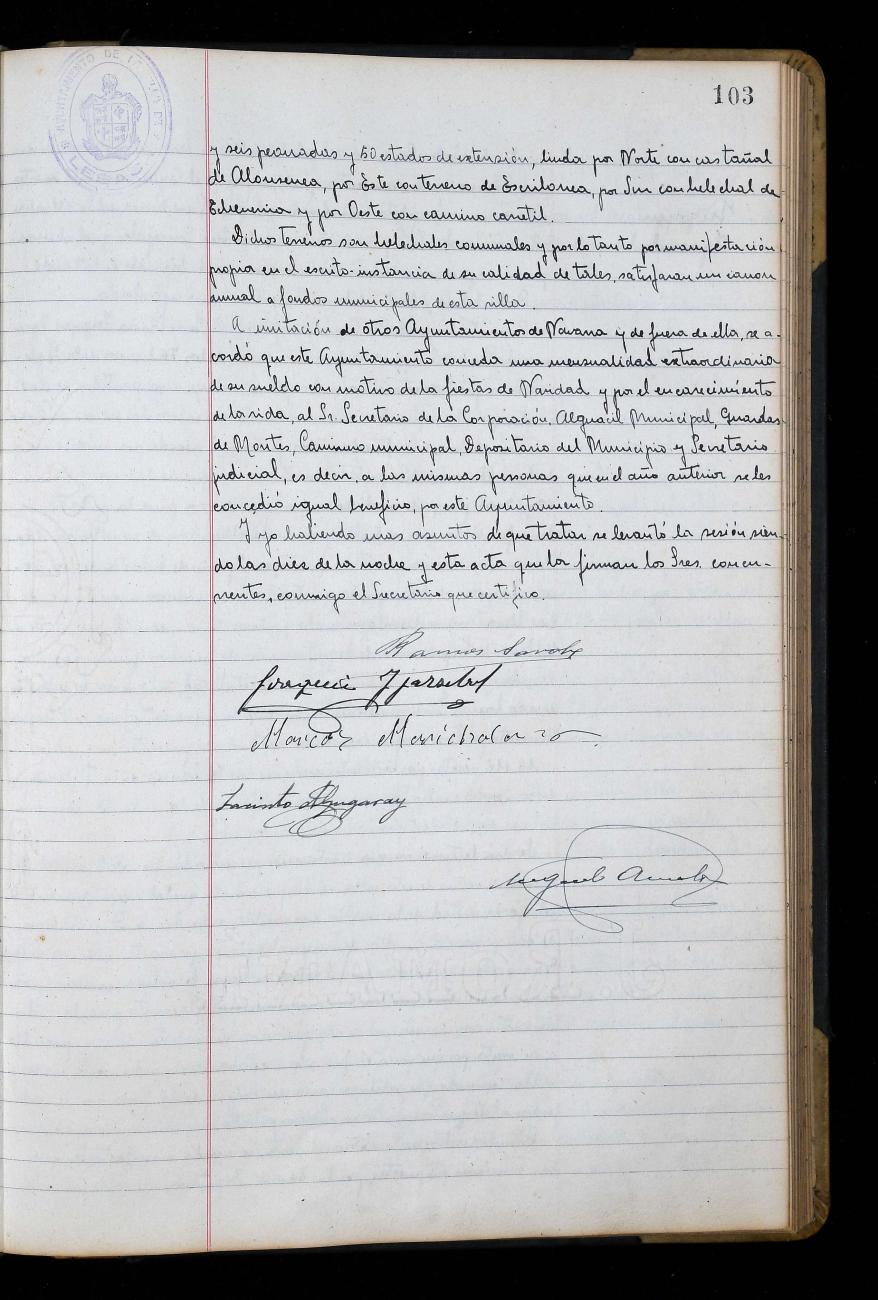 103
AYUNTAMIENTO DE LA VILLA DE
LESACA
y seis peonadas y 50 estados de extensión, linda por Norte con castañal
de Alonsenea, por Este con terreno de Escrilonea, por Sur con helechal de
Echeverria y por Oeste con camino carretil.
Dichos terrenos son helechales comunales y por lo tanto por manifestación
propia en el escrito-instancia de su calidad de tales, satisfaran un canon
anual a fondos municipales de esta villa.
A imitación de otros Ayuntamientos de Navarra y de fuera de ella, se a-
cordó que este Ayuntamiento conceda una mensualidad extraordinaria
de su sueldo con motivo de la fiestas de Navidad y por el encarecimiento
de la vida, al Sr. Secretario de la Corporación, Alguacil Municipal, Guardas
de Montes, Caminero municipal, Depositario del Municipio y Secretario
judicial, es decir, a las mismas personas que en el año anterior se les
concedió igual beneficio, por este Ayuntamiento.
Y no habiendo mas asuntos de que tratar se levantó la sesión sien-
do las diez de la noche y esta acta que la firman los Sres. concu-
rrentes, conmigo el Secretario que certifico.
Ramon
Joaquin
Marcos Marichalar
Jacinto
Miguel